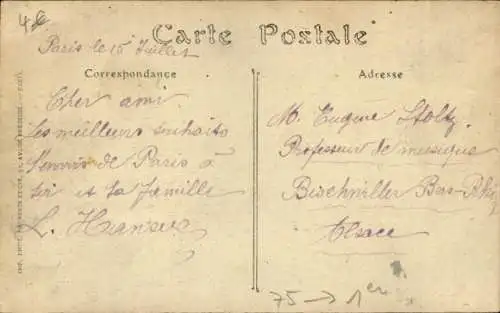 4€
Carte Postale
Paris le 15 Juillet
Correspondance
Cher ami
Les meilleurs souhaits
de Paris à
toi et ta famille
L.
Adresse
M. Eugène Stoltz
Professeur de musique
Bischwiller Bas-Rhin
Alsace
75 → 1er